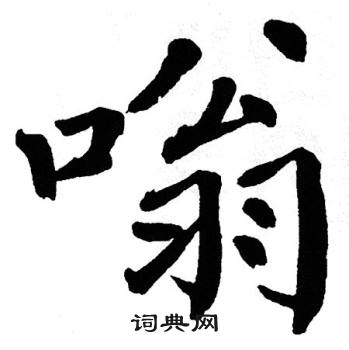 嗡
词典网